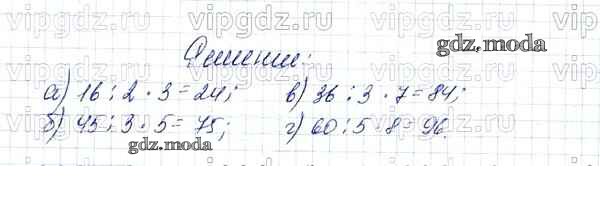 vipgdz.ru vipgdz.ru vipgdz.ru
Решение:
gdz.moda
а) 16 : 2 · 3 = 24; в) 36 : 3 · 7 = 84;
б) 45 : 3 · 5 = 75; г) 60 : 5 · 8 = 96.
gdz.moda
vipgdz.ru vipgdz.ru vipgdz.ru